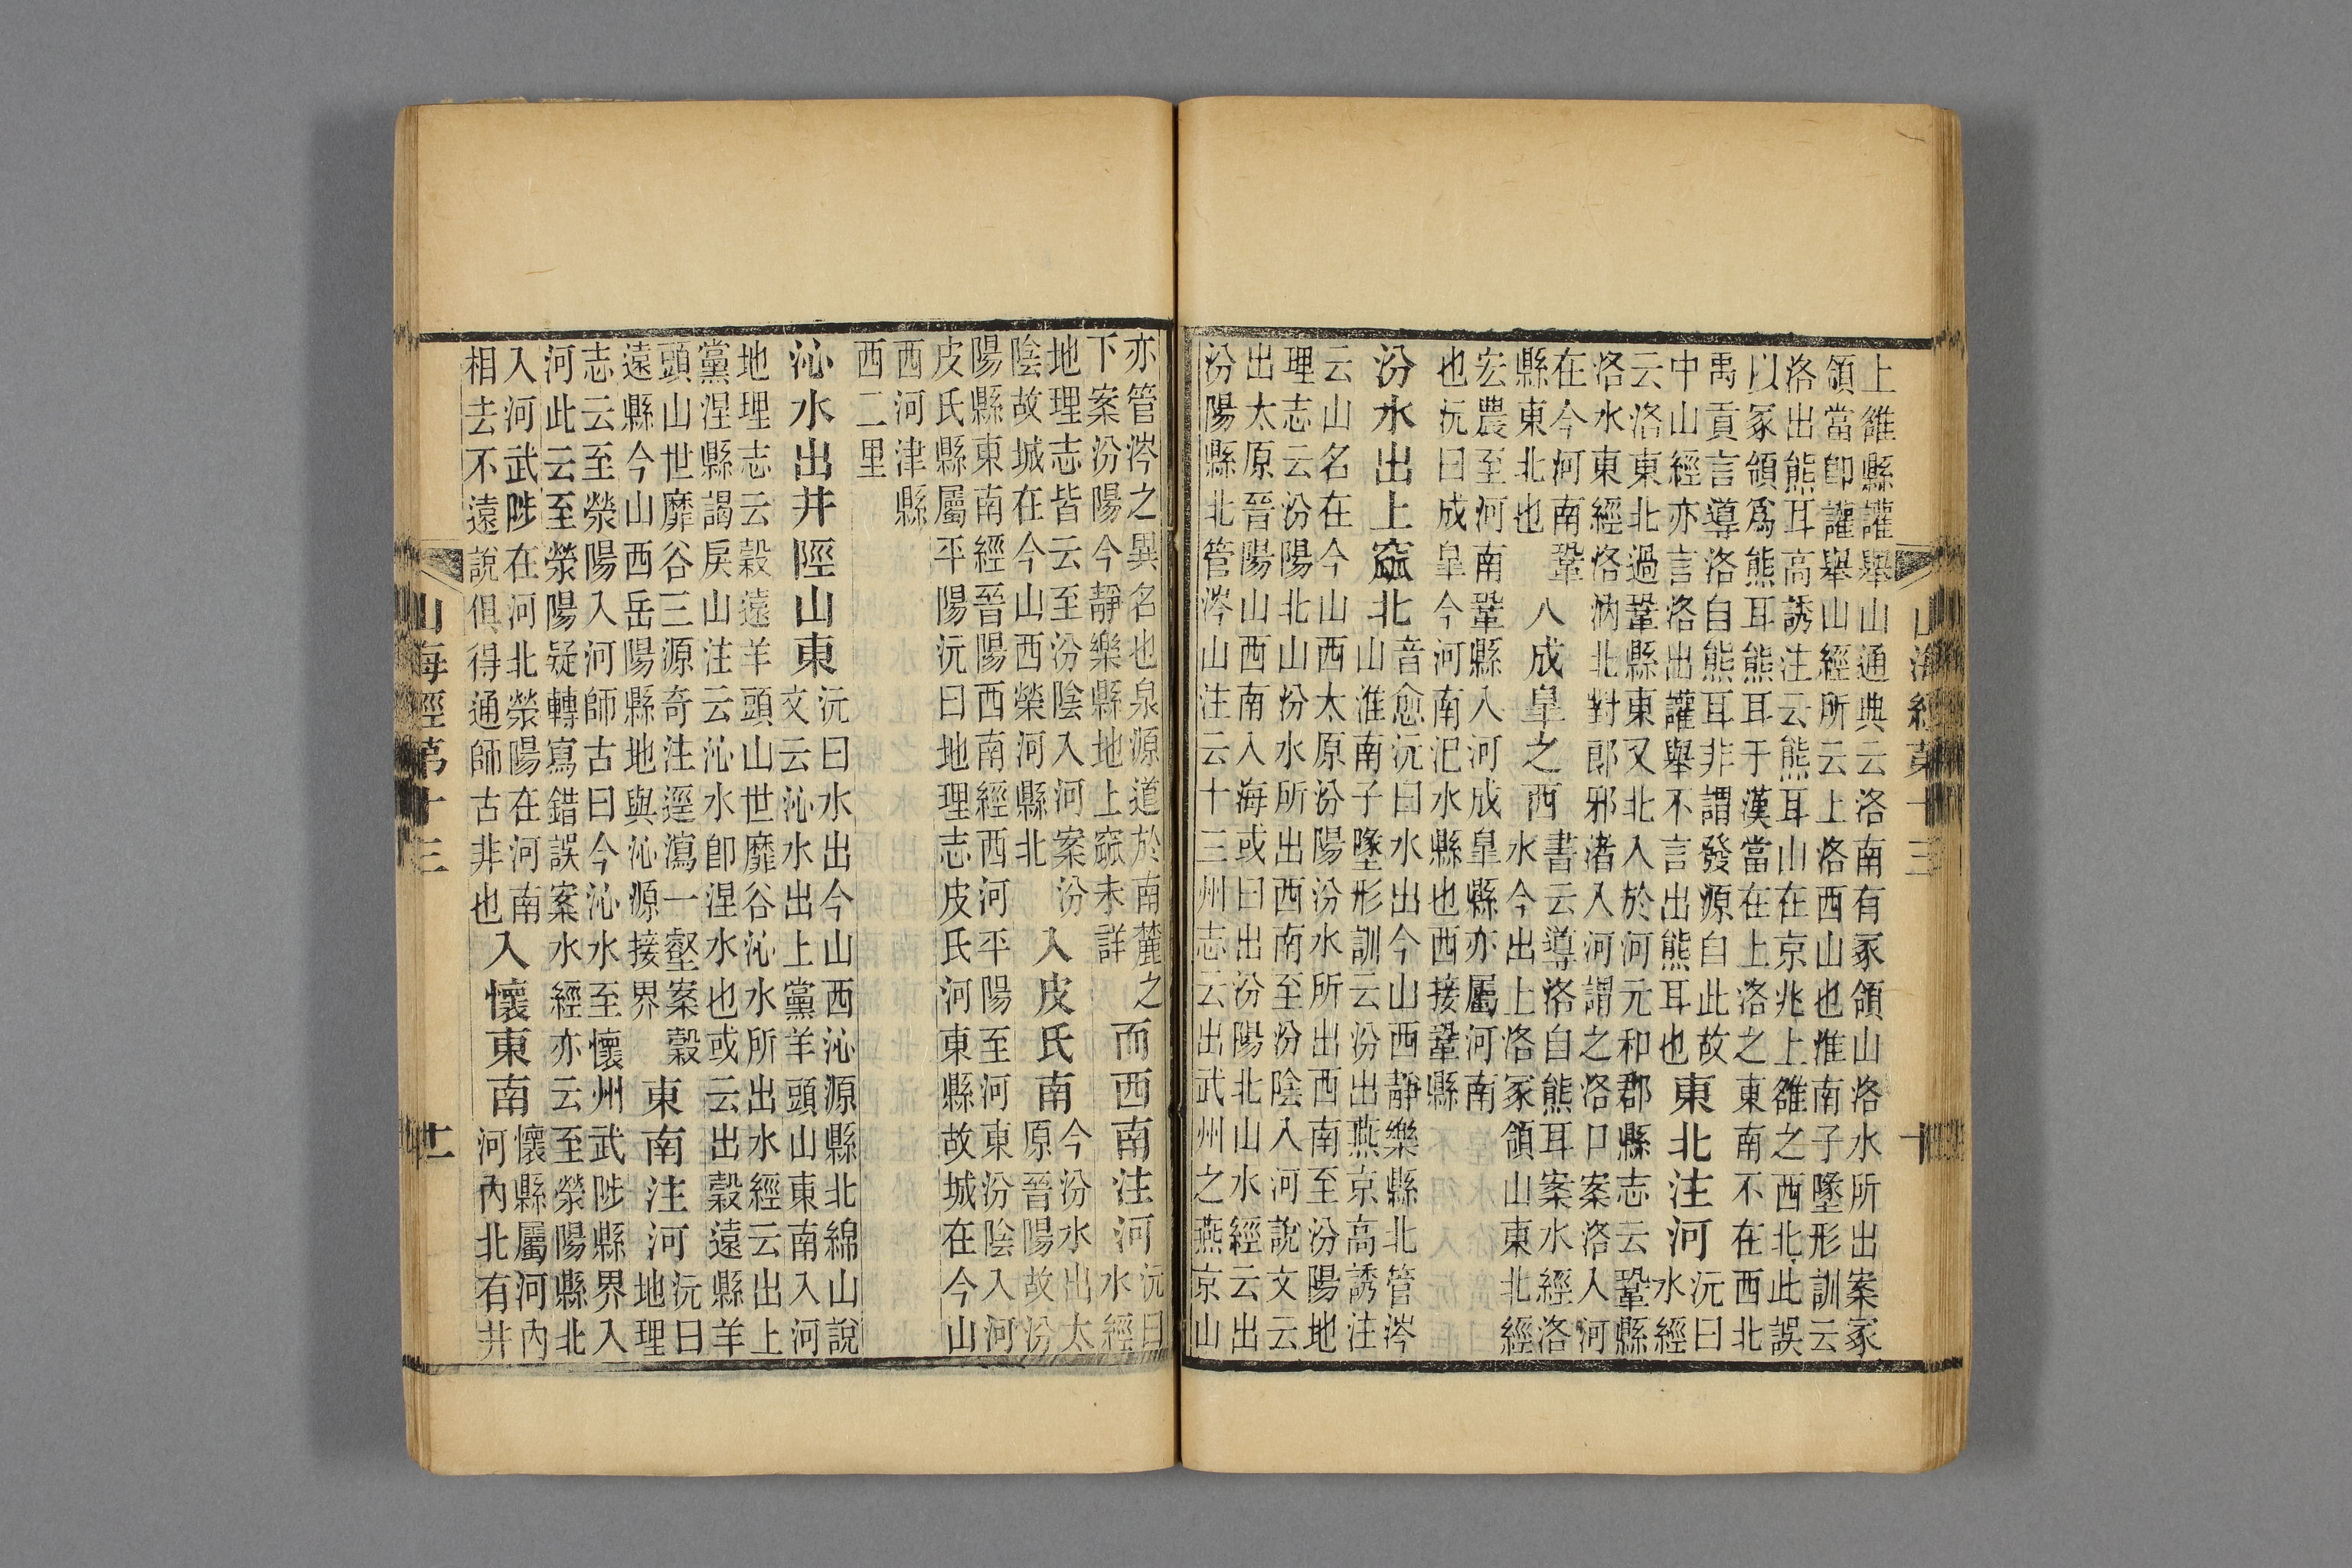 山海經第十三 十
上雒縣讙舉山通典云洛南有冢領山洛水所出案冢
領當卽讙舉山經所云上洛西山也淮南子墬形訓云
洛出熊耳高誘注云熊耳山在京兆上雒之西北此誤
以冢領爲熊耳熊耳于漢當在上洛之東南不在西北
禹貢言導洛自熊耳非謂發源自此故
中山經亦言洛出讙舉不言出熊耳也
東北注河
沅曰
水經
云洛東北過鞏縣東又北入於河元和郡縣志云鞏縣
洛水東經洛汭北對郎邪渚入河謂之洛口案洛入河
在今河南鞏
縣東北也
入成皋之西
書云導洛自熊耳案水經洛
水今出上洛冢領山東北經
宏農至河南鞏縣入河成皋縣亦屬河南
也沅曰成皋今河南汜水縣也西接鞏縣
汾水出上窳北
音愈沅曰水出今山西靜樂縣北管涔
山淮南子墬形訓云汾出燕京高誘注
云山名在今山西太原汾陽汾水所出西南至汾陽地
理志云汾陽北山汾水所出西南至汾陰入河說文云
出太原晉陽山西南入海或曰出汾陽北山水經云出
汾陽縣北管涔山注云十三州志云出武州之燕京山
亦管涔之異名也泉源道於南麓之
下案汾陽今靜樂縣地上窳未詳
而西南注河
沅曰
水經
地理志皆云至汾陰入河案汾
陰故城在今山西榮河縣北
入皮氏南
今汾水出太
原晉陽故汾
陽縣東南經晉陽西南經西河平陽至河東汾陰入河
皮氏縣屬平陽沅曰地理志皮氏河東縣故城在今山
西河津縣
西二里
沁水出井陘山東
沅曰水出今山西沁源縣北綿山說
文云沁水出上黨羊頭山東南入河
地理志云穀遠羊頭山世靡谷沁水所出水經云出上
黨涅縣謁戾山注云沁水卽涅水也或云出穀遠縣羊
頭山世靡谷三源奇注逕瀉一壑案穀
遠縣今山西岳陽縣地與沁源接界
東南注河
沅曰
地理
志云至滎陽入河師古曰今沁水至懷州武陟縣界入
河此云至滎陽疑轉寫錯誤案水經亦云至滎陽縣北
入河武陟在河北滎陽在河南
相去不遠說俱得通師古非也
入懷東南
懷縣屬河內
河內北有井
山海經第十三 十一